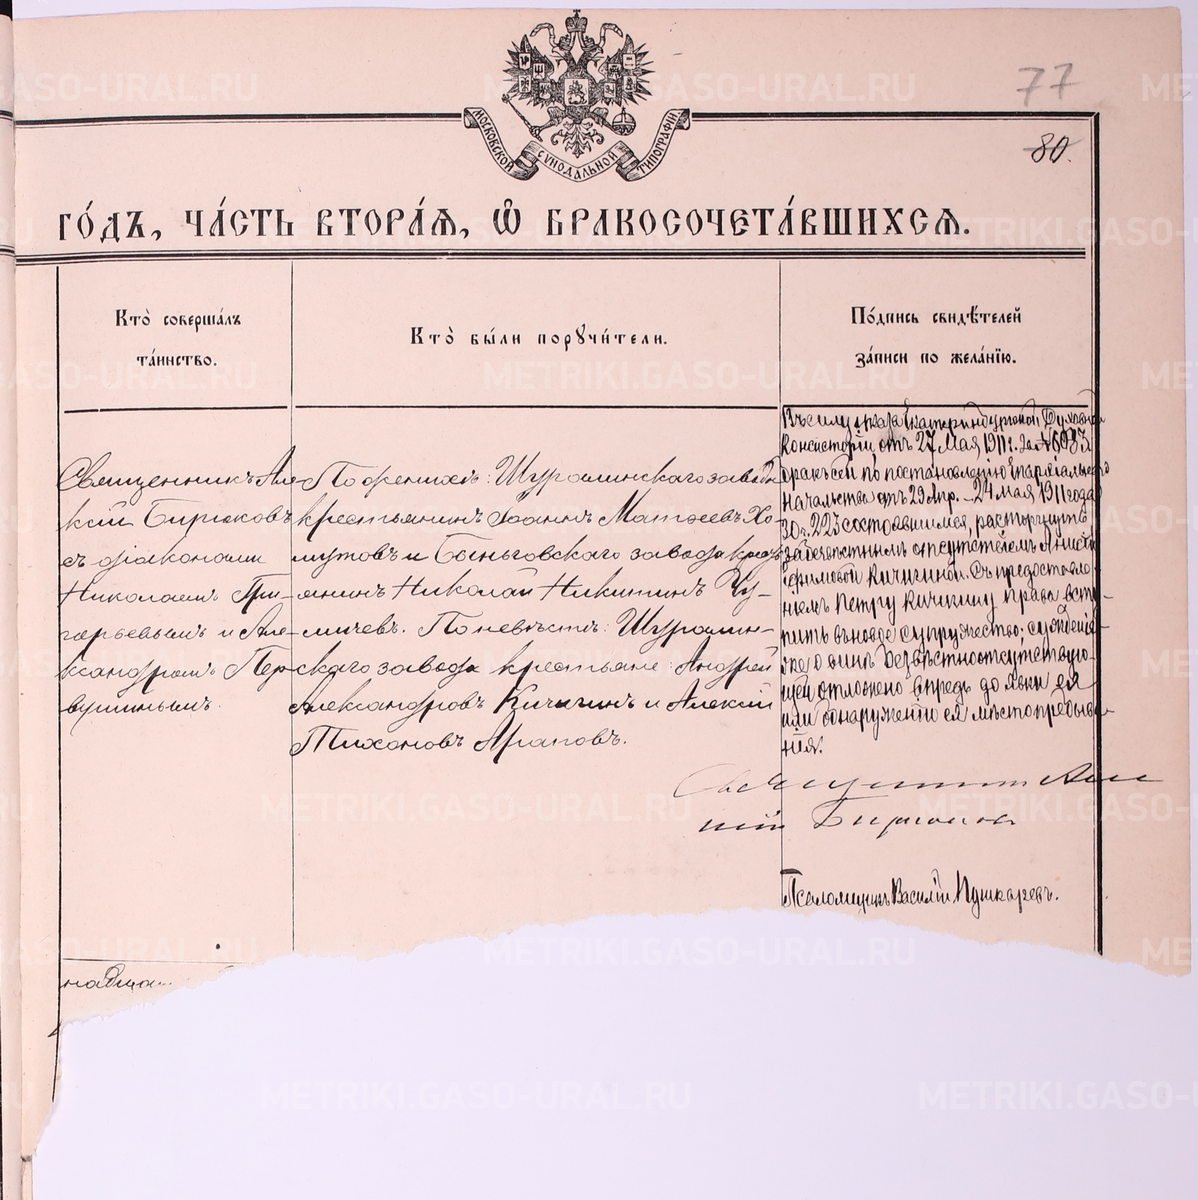 77
80.
МОСКОВСКОЙ СѴНОДАЛЬНОЙ ТИПОГРАФІИ
ГО́ДЪ, ЧА́СТЬ ВТОРА́Я, Ѡ҆ БРАКОСОЧЕТА́ВШИХСЯ.
Кто̀ соверша́лъ
та́инство.
Кто̀ бы́ли порꙋчи́тели.
По́дпись свидѣ́телей
за́писи по жела́нїю.
Священникъ Але
ксій Бирюковъ
съ діаконами
Николаемъ Гри-
горьевымъ и Але-
ксандромъ Пер
вушинымъ.
По женихѣ: Шуралинскаго завода
крестьянинъ Іоаннъ Матѳеевъ Хо
мутовъ и Быньговскаго завода крест
янинъ Николай Никитинъ Чу-
мичевъ. По невѣстѣ: Шуралин-
скаго завода крестьяне: Андрей
Александровъ Кичигинъ и Алексій
Тихоновъ Араповъ.
Въ силу указа Екатеринбургской Духовной
Консисторіи отъ 27 Мая 1911 г. за № 6983
бракъ сей по постановленію Епархіальнаго
Начальства отъ 29 Апр. - 24 мая 1911 года
за № 223 состоявшимся, расторгнутъ
за безвѣстнымъ отсутствіемъ Анисіи
Ефимовой Кичигиной. Съ предоставле-
ніемъ Петру Кичигину права всту-
пить въ новое супружество; сужденіе
же о винѣ безвѣстноотсутствую-
щей отложено впредь до явки ея
или обнаруженію ея мѣстопребыва-
нія.
Священникъ Алек
сій Бирюковъ
Псаломщикъ Василій Пушкаревъ.
METRIKI.GASO-URAL.RU